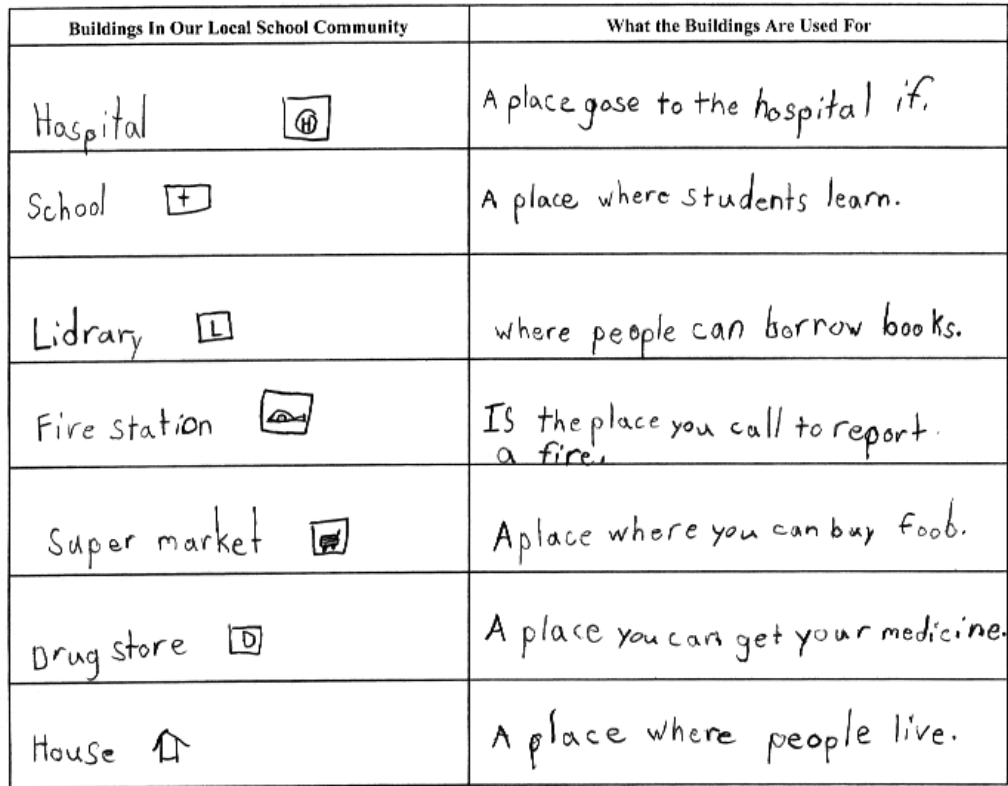 Buildings In Our Local School Community
What the Buildings Are Used For
Hospital H
A place gose to the hospital if.
School +
A place where students learn.
Lidrary L
where people can borrow books.
Fire station
Is the place you call to report.
a fire.
Super market
A place where you can buy foob.
Drug store D
A place you can get your medicine.
House
A place where people live.